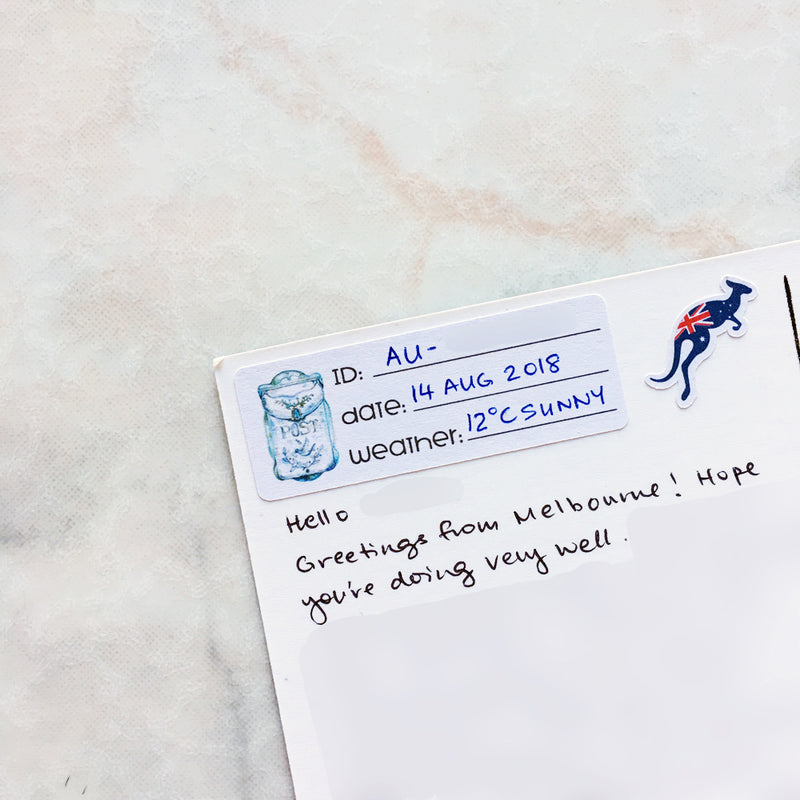 ID: AU-
date: 14 AUG 2018
weather: 12°C SUNNY
POST
Hello
Greetings from Melbourne! Hope
you're doing very well.